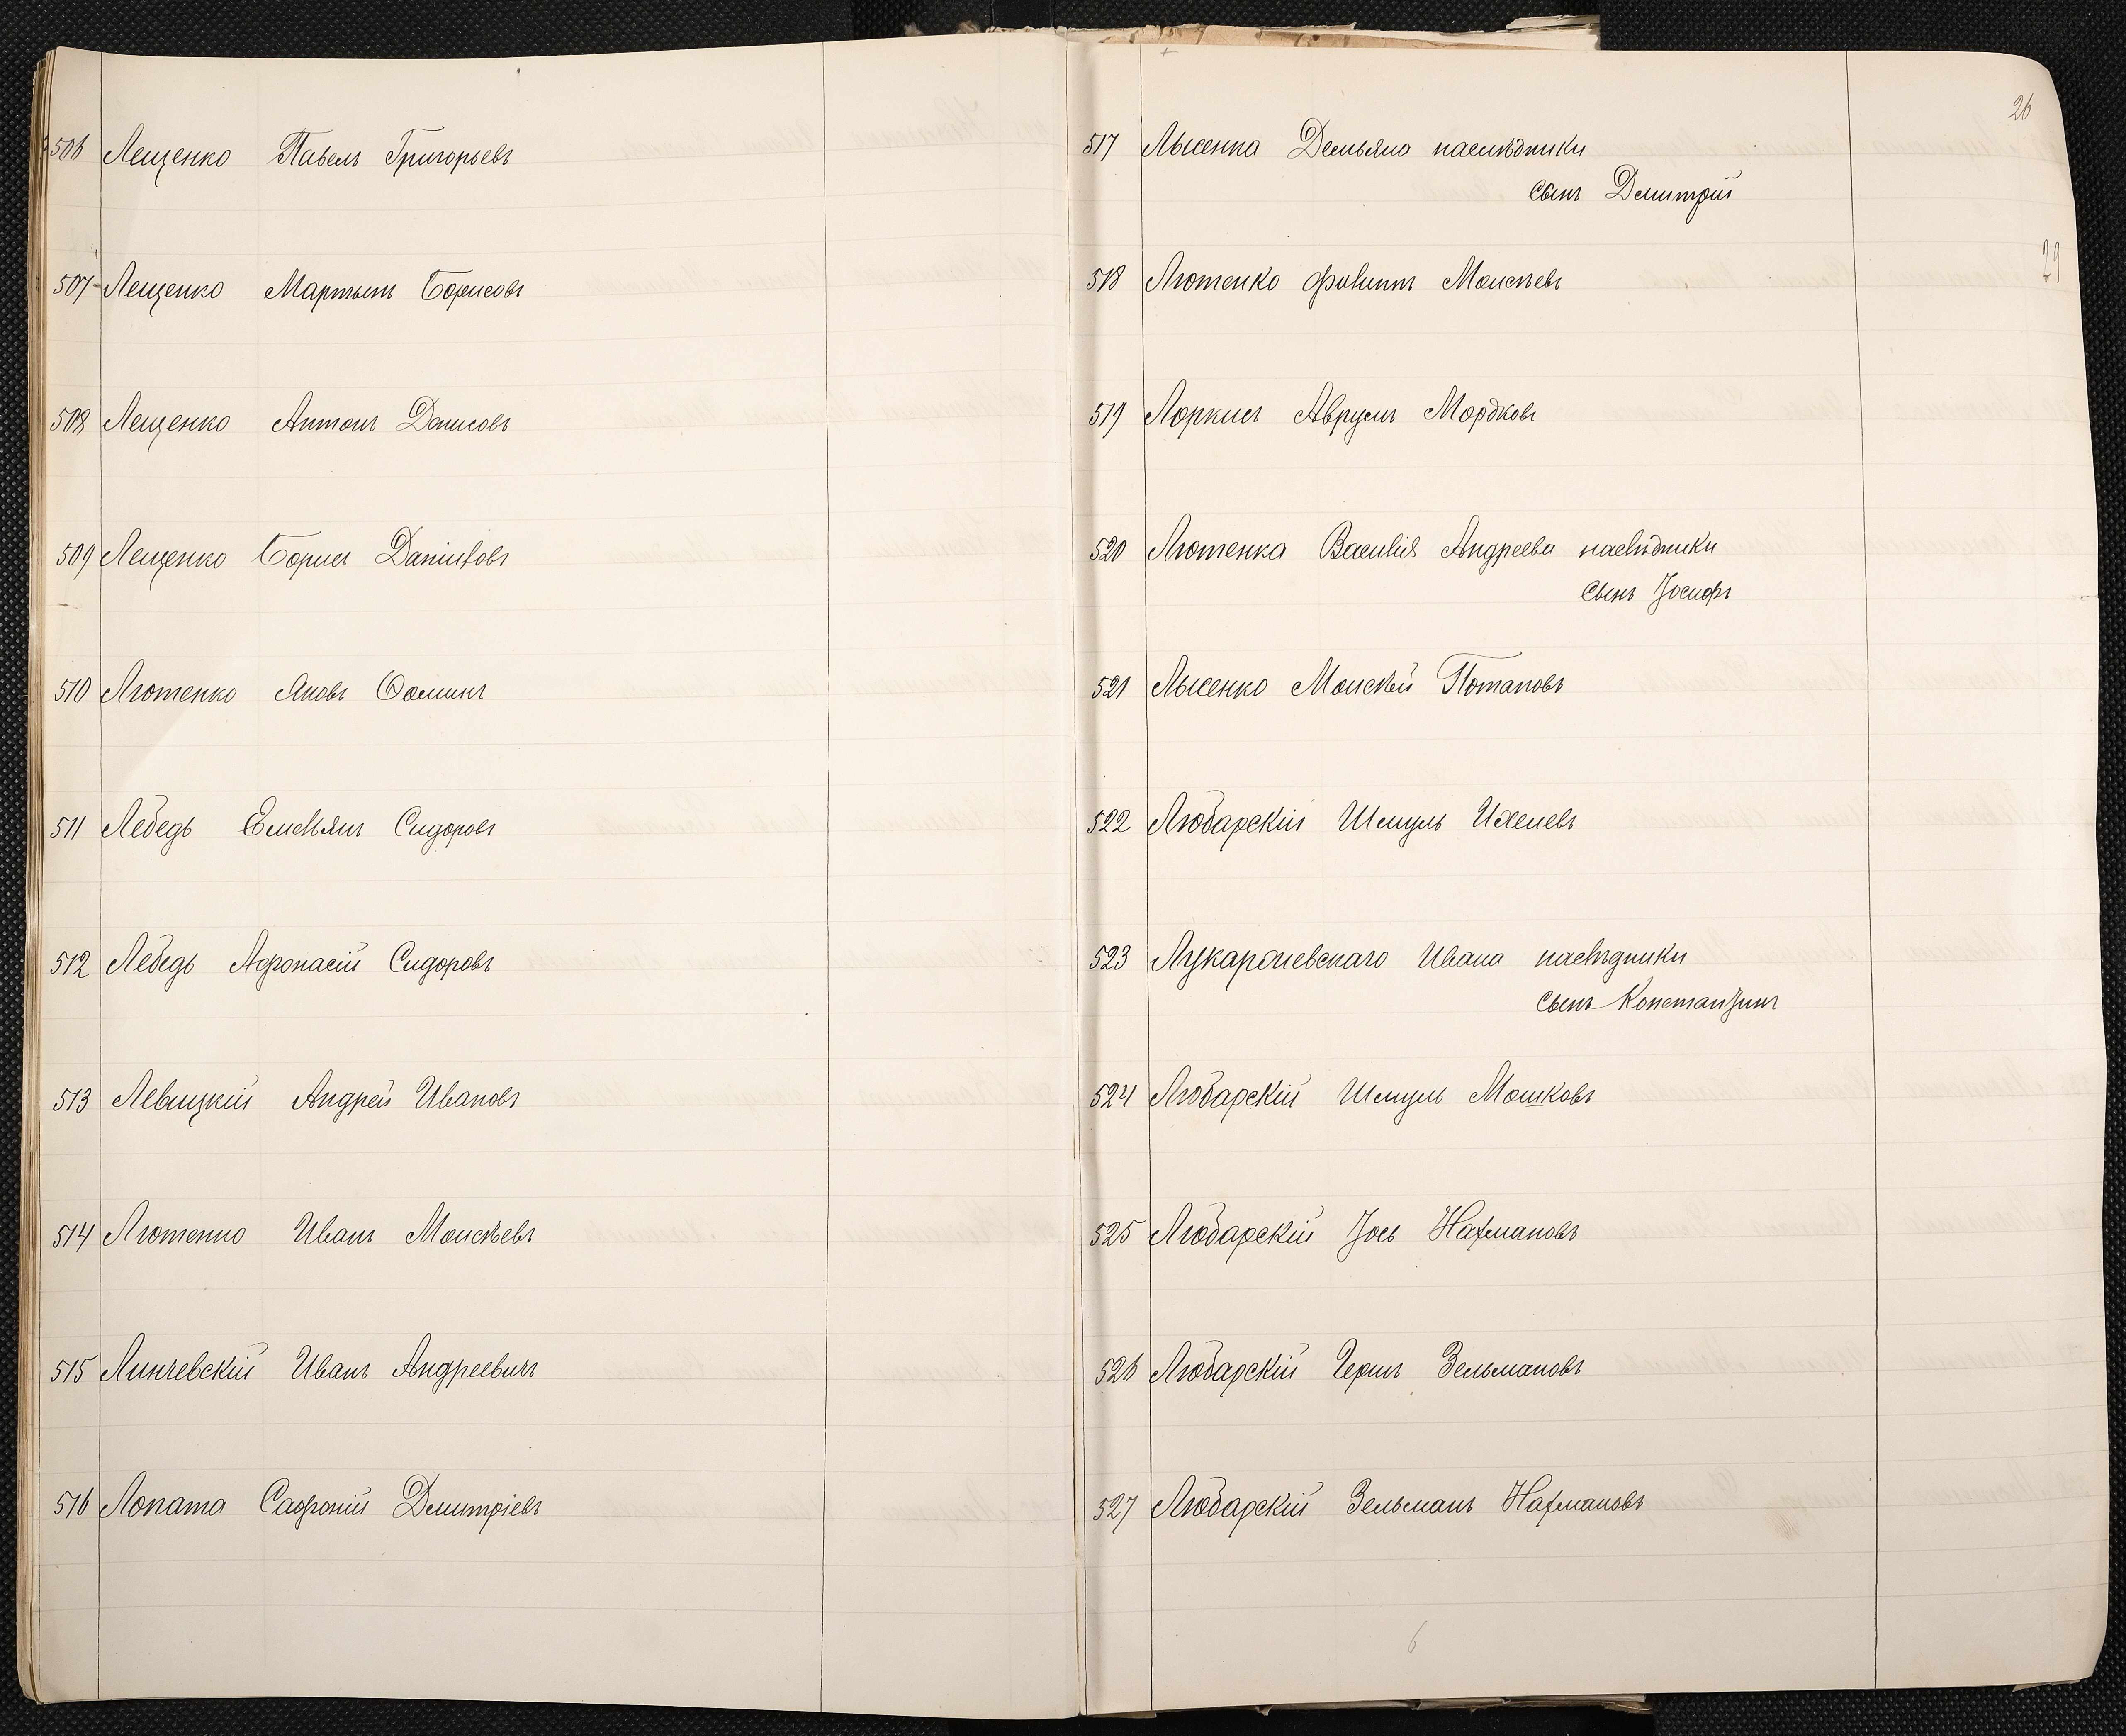 506 Лещенко Павелъ Григорьевъ
507 Лещенко Мартынъ Борисовъ
508 Лещенко Антонъ Данисовъ
509 Лещенко Борисъ Даниловъ
510 Лютенко Яковъ Фоминъ
511 Лебедь Емельянъ Сидоровъ
512 Лебедь Афонасій Сидоровъ
513 Левицкій Андрей Ивановъ
514 Лютенко Иванъ Моисѣевъ
515 Линчевскій Иванъ Андреевичъ
516 Лопата Сафроній Дмитріевъ
26
517 Лысенка Демьяна наслѣдники
сынъ Дмитрій
29
518 Лютенко Филиппъ Моисѣевъ
519 Лоркисъ Аврумъ Мордковъ
520 Лютенка Василія Андреева наслѣдники
сынъ Іосифъ
521 Лысенко Моисѣй Потаповъ
522 Любарскій Шмуль Ихелевъ
523 Лукарашевскаго Ивана наслѣдники
сынъ Константинъ
524 Любарскій Шмуль Мошковъ
525 Любарскій Іось Нахмановъ
526 Любарскій Гершъ Зельмановъ
527 Любарскій Зельманъ Нахмановъ
6